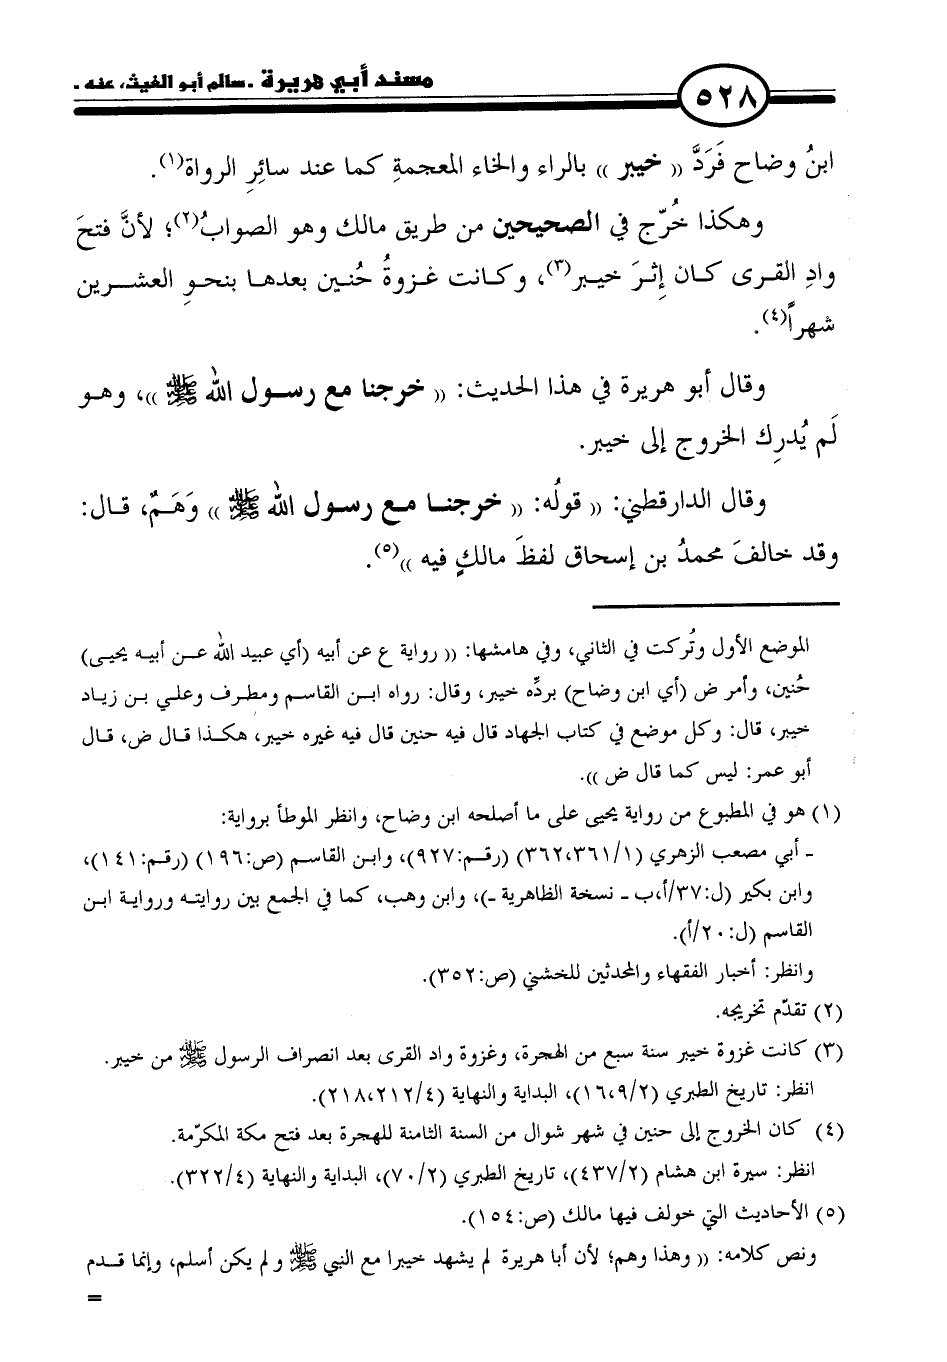 ٥٢٨ مسند أبي هريرة . سالم أبو الغيث، عنه .
ابنُ وضاح فَرَدَّ (( خيبر )) بالراء والخاء المعجمةِ كما عند سائرِ الرواة(١).
وهكذا خُرِّج في الصحيحين من طريق مالك وهو الصوابُ(٢)؛ لأنَّ فتحَ
وادِ القرى كان إِثرَ خيبر(٣)، وكانت غزوةُ حُنين بعدها بنحوِ العشرين
شهراً(٤).
وقال أبو هريرة في هذا الحديث: (( خرجنا مع رسول الله ﷺ ))، وهو
لَم يُدرِك الخروج إلى خيبر.
وقال الدارقطني: (( قولُه: (( خرجنا مع رسول الله ﷺ )) وَهَمٌ، قال:
وقد خالفَ محمدُ بن إسحاق لفظَ مالكٍ فيه ))(٥).
الموضع الأول وتُركت في الثاني، وفي هامشها: (( رواية ع عن أبيه (أي عبيد الله عن أبيه يحيى)
حُنين، وأمر ض (أي ابن وضاح) بردِّه خيبر، وقال: رواه ابن القاسم ومطرف وعلي بن زياد
خيبر، قال: وكل موضع في كتاب الجهاد قال فيه حنين قال فيه غيره خيبر، هكذا قال ض، قال
أبو عمر: ليس كما قال ض )).
(١) هو في المطبوع من رواية يحيى على ما أصلحه ابن وضاح، وانظر الموطأ برواية:
ـ أبي مصعب الزهري (٣٦٢،٣٦١/١) (رقم:٩٢٧)، وابن القاسم (ص:١٩٦) (رقم:١٤١)،
وابن بكير (ل:٣٧/أ،ب ـ نسخة الظاهرية ـ)، وابن وهب، كما في الجمع بين روايته ورواية ابن
القاسم (ل:٢٠/أ).
وانظر: أخبار الفقهاء والمحدثين للخشني (ص:٣٥٢).
(٢) تقدّم تخريجه.
(٣) كانت غزوة خيبر سنة سبع من الهجرة، وغزوة واد القرى بعد انصراف الرسول ﷺ من خيبر.
انظر: تاريخ الطبري (١٦،٩/٢)، البداية والنهاية (٢١٨،٢١٢/٤).
(٤) كان الخروج إلى حنين في شهر شوال من السنة الثامنة للهجرة بعد فتح مكة المكرّمة.
انظر: سيرة ابن هشام (٤٣٧/٢)، تاريخ الطبري (٧٠/٢)، البداية والنهاية (٣٢٢/٤).
(٥) الأحاديث التي خولف فيها مالك (ص:١٥٤).
ونص كلامه: (( وهذا وهم؛ لأن أبا هريرة لم يشهد خيبرا مع النبي ﷺ ولم يكن أسلم، وإنما قدم
=